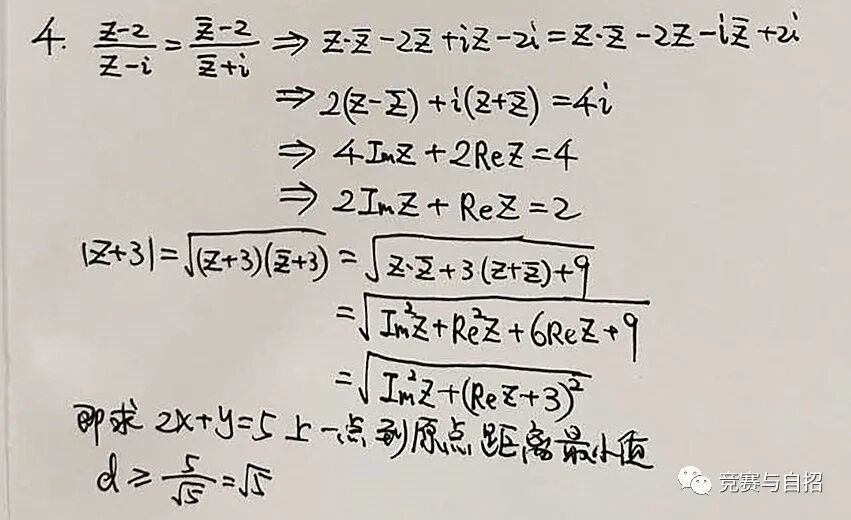 4. (z-2)/(z-i) = (z̄-2)/(z̄+i) ⇒ z·z̄-2z̄+iz-2i=z·z̄-2z-iz̄+2i
⇒ 2(z-z̄)+i(z+z̄)=4i
⇒ 4Imz+2Rez=4
⇒ 2Imz+Rez=2
|z+3|=√((z+3)(z̄+3)) = √(z·z̄+3(z+z̄)+9)
=√(Im²z+Re²z+6Rez+9)
=√(Im²z+(Rez+3)²)
即求 2x+y=5上一点到原点距离最小值
d ≥ 5/√5 = √5
竞赛与自招